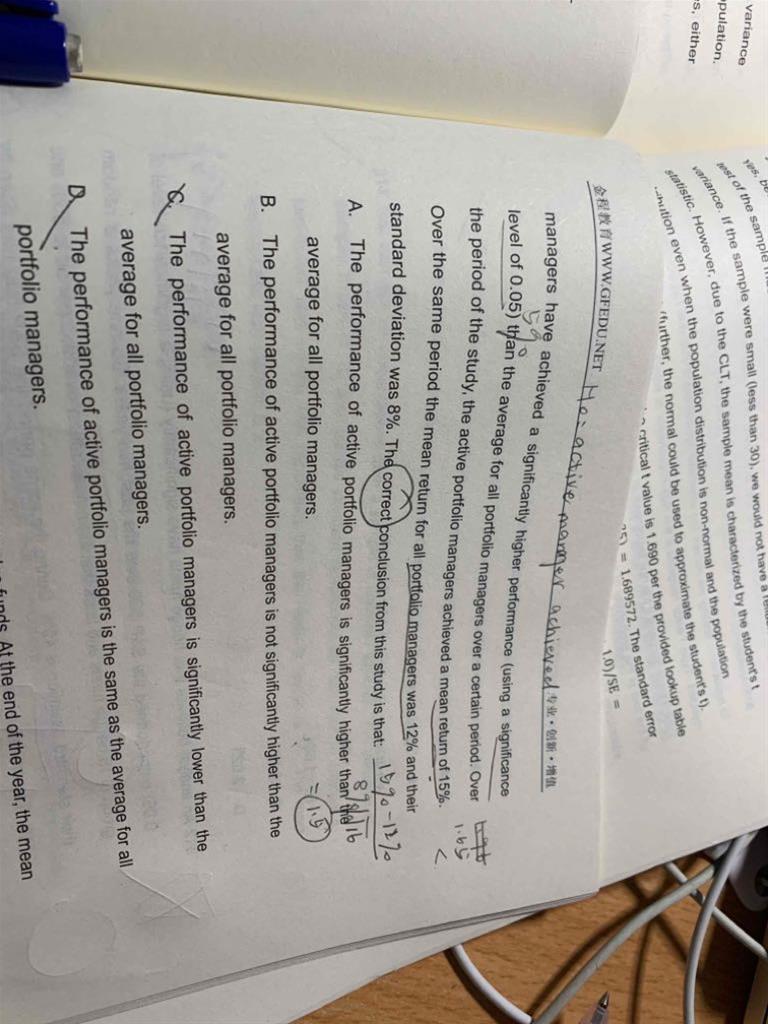 variance
pulation.
s, either
yes, be
test of the sample
variance. If the sample were small (less than 30), we would not have a
statistic. However, due to the CLT, the sample mean is characterized by the student's t
even when the population distribution is non-normal and the population
(further, the normal could be used to approximate the student's t).
critical t value is 1.690 per the provided lookup table
= 1.689572. The standard error
1.0)/SE =
金程教育WWW.GFEDU.NET
H₀: active manager achieved
专业·创新·增值
managers have achieved a significantly higher performance (using a significance
level of 0.05) than the average for all portfolio managers over a certain period. Over
5%
the period of the study, the active portfolio managers achieved a mean return of 15%.
1.65
<
Over the same period the mean return for all portfolio managers was 12% and their
standard deviation was 8%. The correct conclusion from this study is that:
15% - 12%
8%/√16
= 1.5
A. The performance of active portfolio managers is significantly higher than the
average for all portfolio managers.
B. The performance of active portfolio managers is not significantly higher than the
average for all portfolio managers.
C. The performance of active portfolio managers is significantly lower than the
average for all portfolio managers.
D. The performance of active portfolio managers is the same as the average for all
portfolio managers.
funds. At the end of the year, the mean